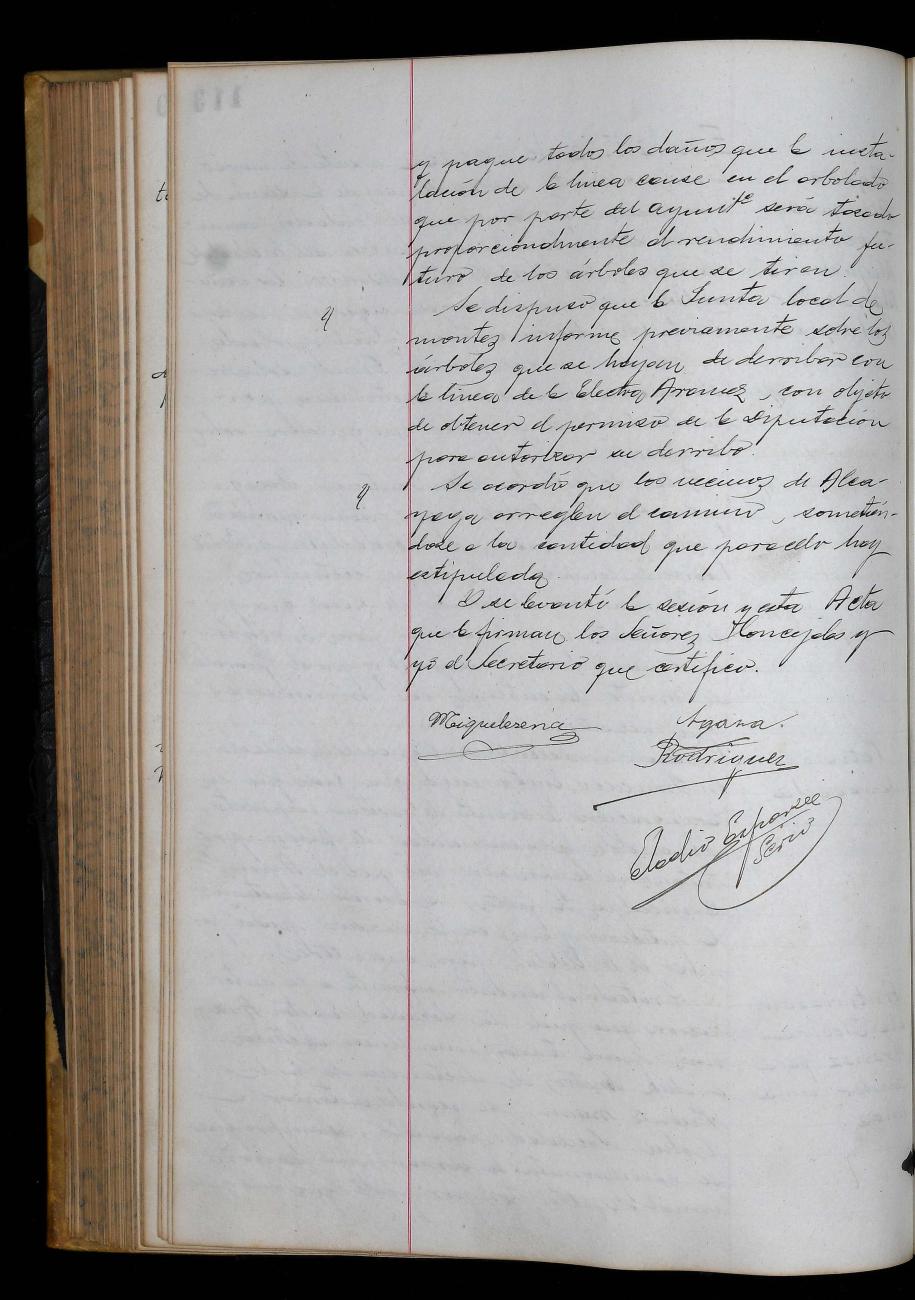 y pague todos los daños que la insta-
lación de la linea cause en el arbolado
que por parte del ayuntte será tasado
proporcionalmente al rendimiento fu-
turo de los árboles que se tiren.
Se dispuso que la Junta local de
montes informe previamente sobre los
árboles que se hayan de derribar con
la linea de la Electra Aranaz, con objeto
de obtener el permiso de la Diputación
para autorizar su derribo.
Se acordó que los vecinos de Alca-
yaga arreglen el camino, sometién-
dose a la cantidad que para ello hay
estipulada.
Y se levantó la sesión y esta Acta
que la firman los Señores Concejales y
yó el Secretario que certifico.
Miquelesena Agara.
Rodriguez
Eladio Esparza
Serio